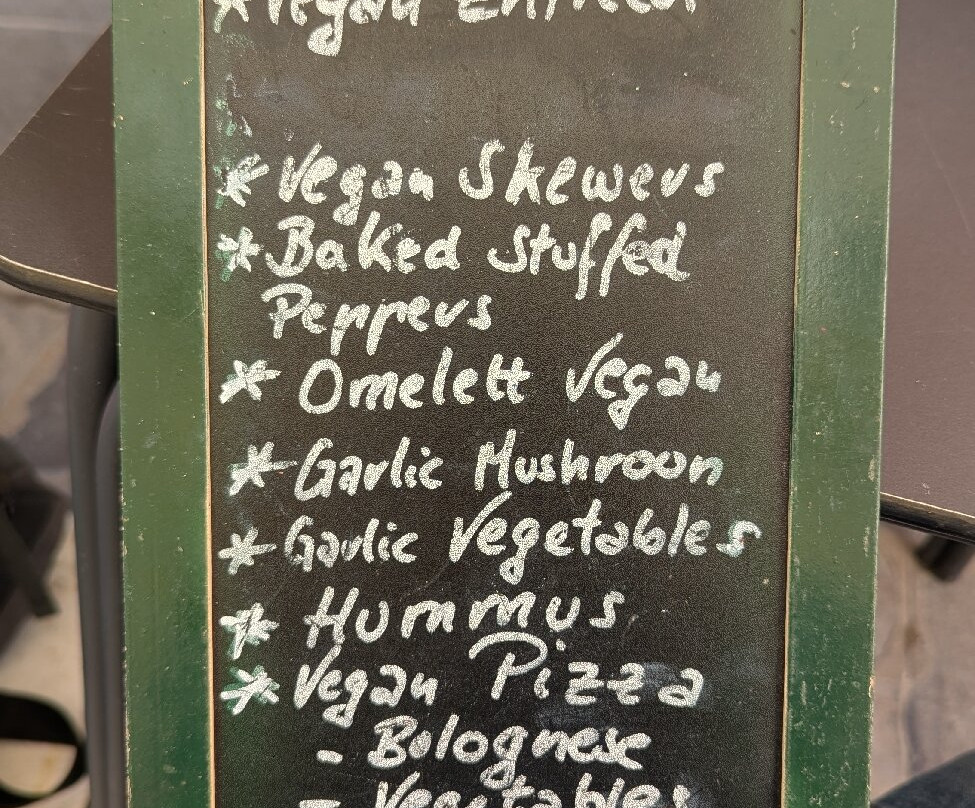 * Vegan
* Vegan Skewers
* Baked Stuffed
Peppers
* Omelett Vegan
* Garlic Mushroon
* Garlic Vegetables
* Hummus
* Vegan Pizza
- Bolognese
- Vegetables